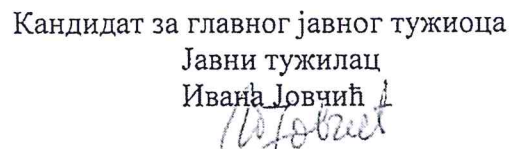 Кандидат за главног јавног тужиоца
Јавни тужилац
Ивана Јовчић